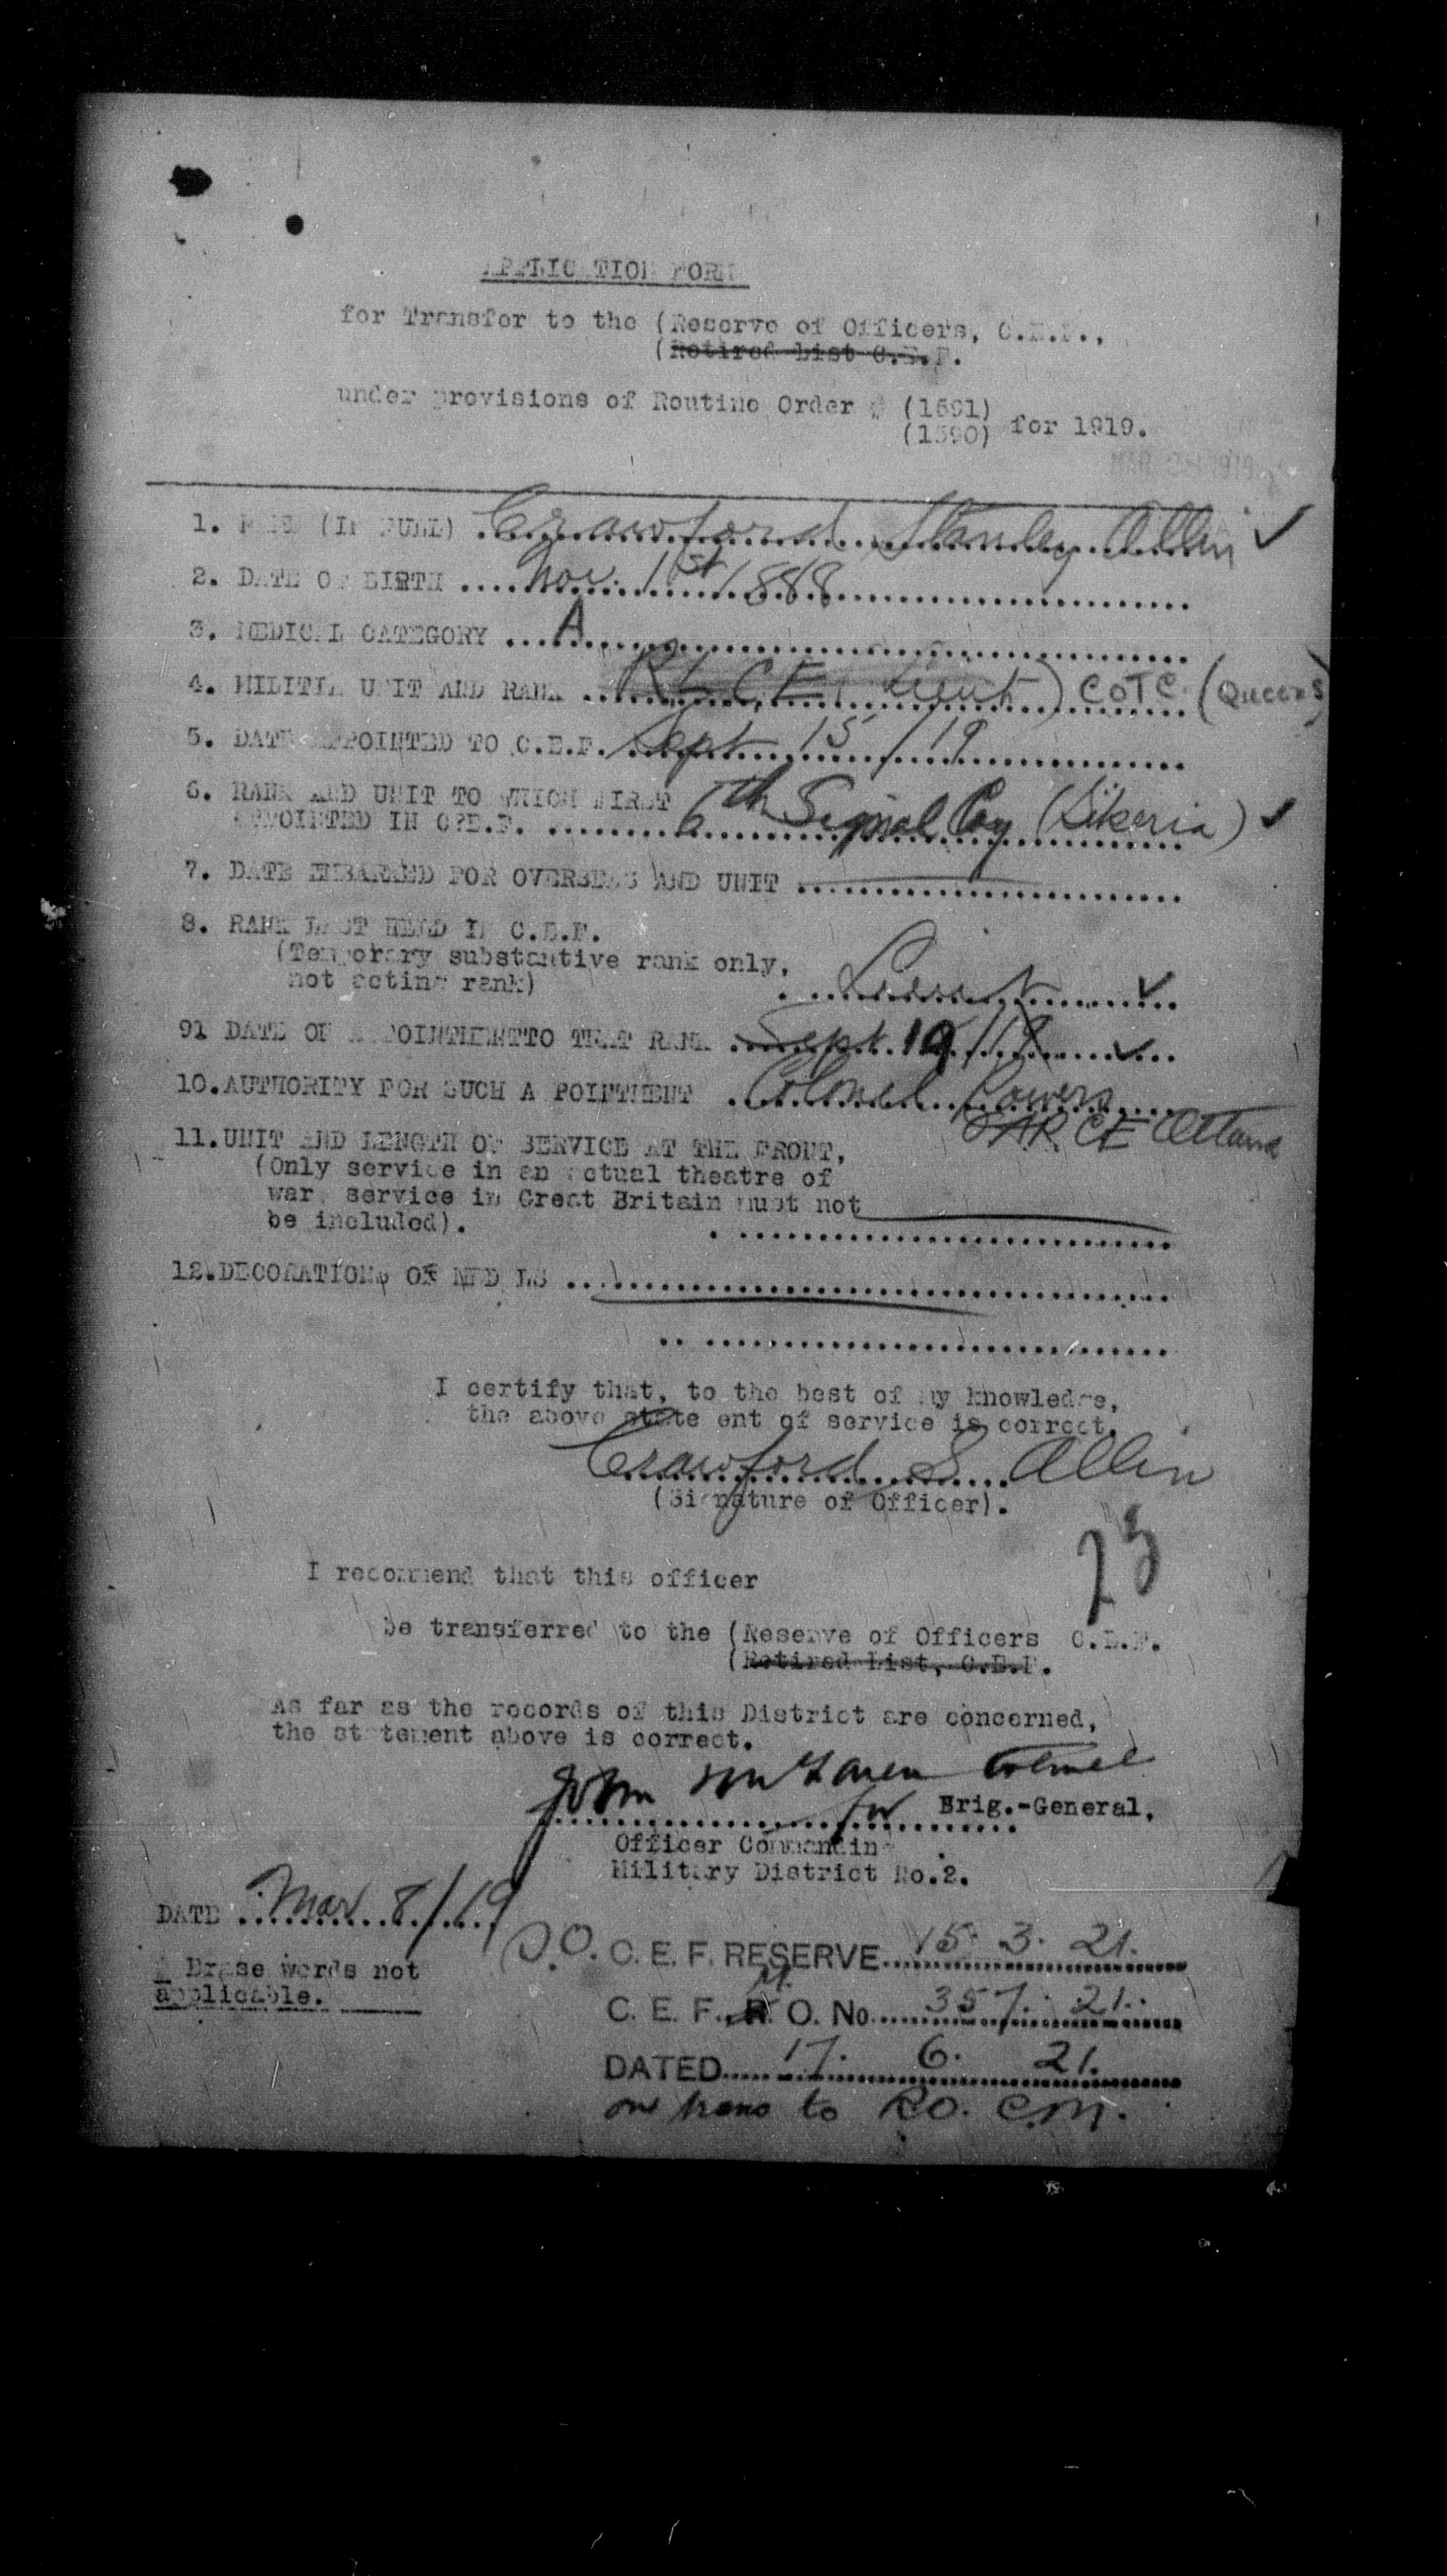 APPLICATION FORM
for Transfer to the (Reserve of Officers, C.E.F.,
(Retired List C.E.F.
under provisions of Routine Order # (1591)
(1590) for 1919.
1. NAME (IN FULL) Crawford Stanley Allin ✓
2. DATE OF BIRTH .... Nov. 1st 1888
3. MEDICAL CATEGORY ... A
4. MILITIA UNIT AND RANK .. C E Lieut) COTC (Queens)
5. DATE APPOINTED TO C.E.F. Sept 15/19
6. RANK AND UNIT TO WHICH FIRST
APPOINTED IN C?E.F. 6th Signal Coy (Sikeria) ✓
7. DATE EMBARKED FOR OVERSEAS AND UNIT
8. RANK LAST HELD IN C.E.F.
(Temporary substantive rank only,
not acting rank) Lieut ✓
91 DATE OF APPOINTMENTTO THAT RANK Sept 19/18 ✓
10. AUTHORITY FOR SUCH APPOINTMENT Colonel Powers
CE Ottawa
11. UNIT AND LENGTH OF SERVICE AT THE FRONT,
(Only service in an actual theatre of
war, service in Great Britain must not
be included).
12. DECORATIONS OR MEDALS
I certify that, to the best of my knowledge,
the above statement of service is correct.
Crawford S. Allin
(Signature of Officer).
I recommend that this officer
73
be transferred to the (Reserve of Officers C.E.F.
(Retired List, C.E.F.
As far as the records of this District are concerned,
the statement above is correct.
John Colonel
for Brig.-General,
Officer Commanding
Military District No.2.
DATE Mar 8/19
# Erase words not
applicable.
C. E. F. RESERVE 15. 3. 21.
C. E. F. R. O. No. 357. 21.
DATED 17. 6. 21.
on trans to R.O. C.M.